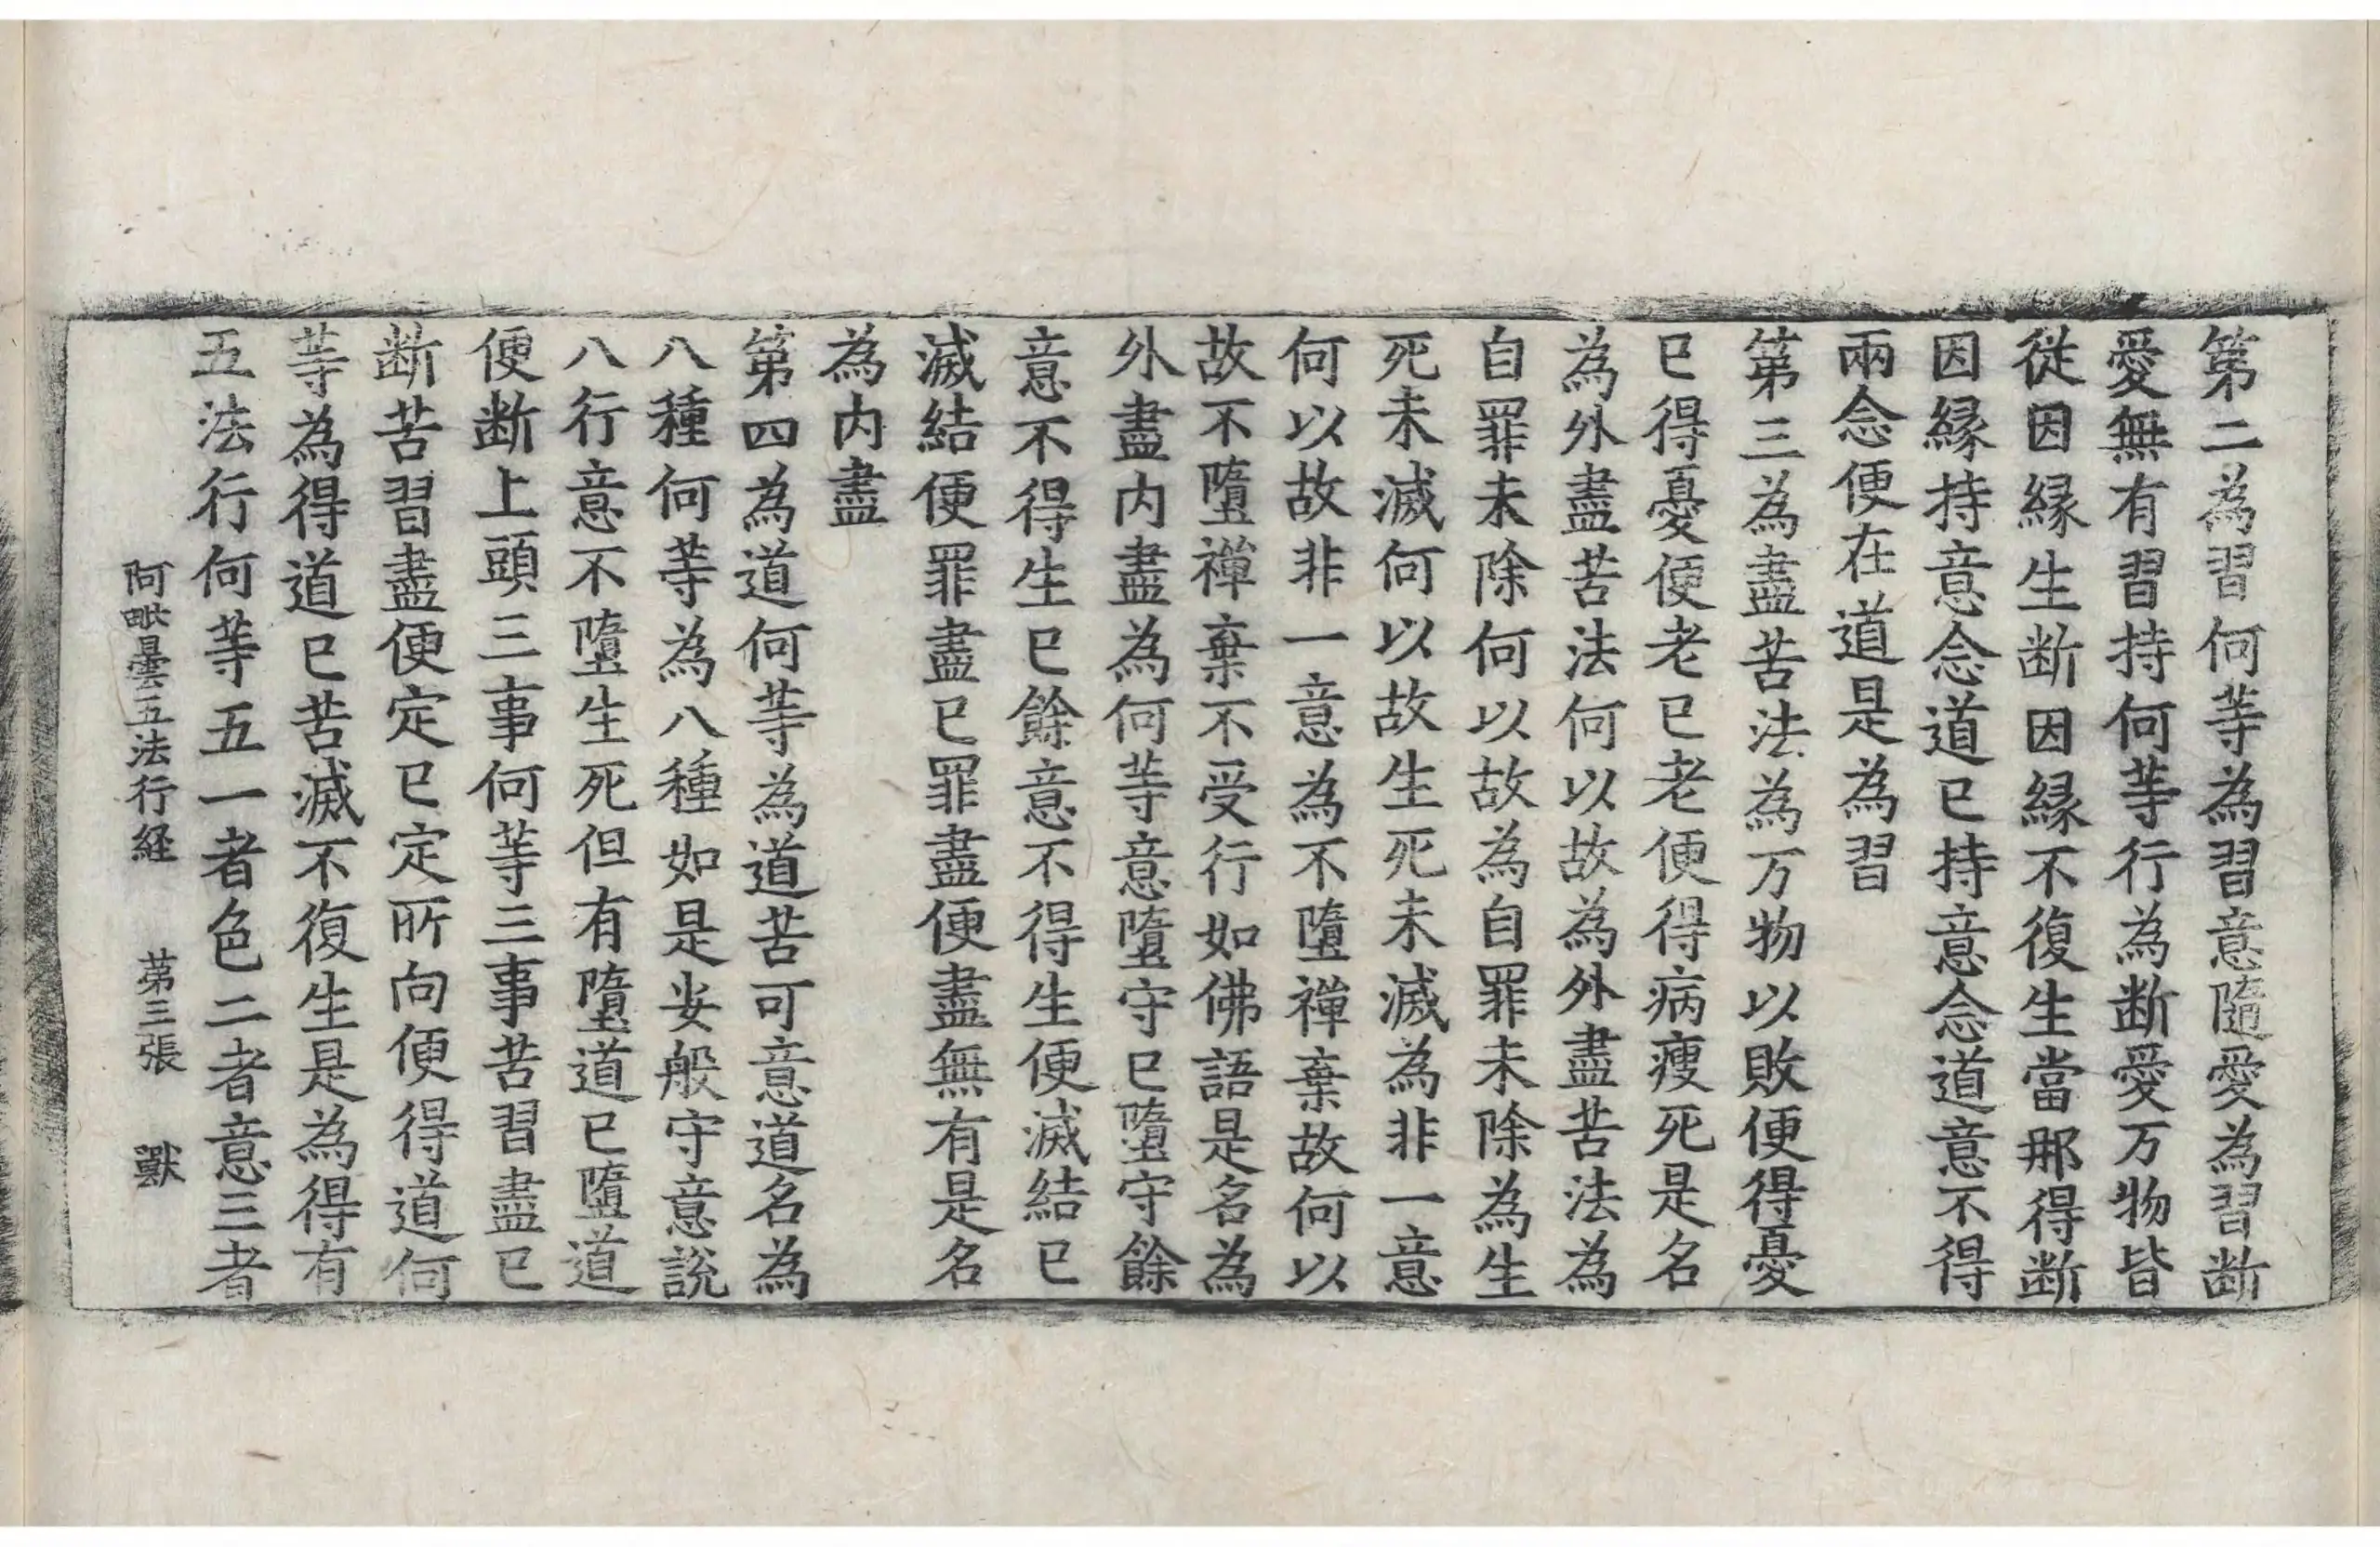 第二為習何等為習意隨愛為習断
愛無有習持何等行為断愛万物皆
從因縁生断因縁不復生當那得断
因縁持意念道已持意念道意不得
兩念便在道是為習
第三為盡苦法為万物以敗便得憂
已得憂便老已老便得病瘦死是名
為外盡苦法何以故為外盡苦法為
自罪未除何以故為自罪未除為生
死未滅何以故生死未滅為非一意
何以故非一意為不墮禪棄故何以
故不墮禪棄不受行如佛語是名為
外盡内盡為何等意墮守已墮守餘
意不得生已餘意不得生便滅結已
滅結便罪盡已罪盡便盡無有是名
為内盡
第四為道何等為道苦可意道名為
八種何等為八種如是安般守意說
八行意不墮生死但有墮道已墮道
便断上頭三事何等三事苦習盡已
断苦習盡便定已定所向便得道何
等為得道已苦滅不復生是為得有
五法行何等五一者色二者意三者
阿毗曇五法行経 第三張 獸